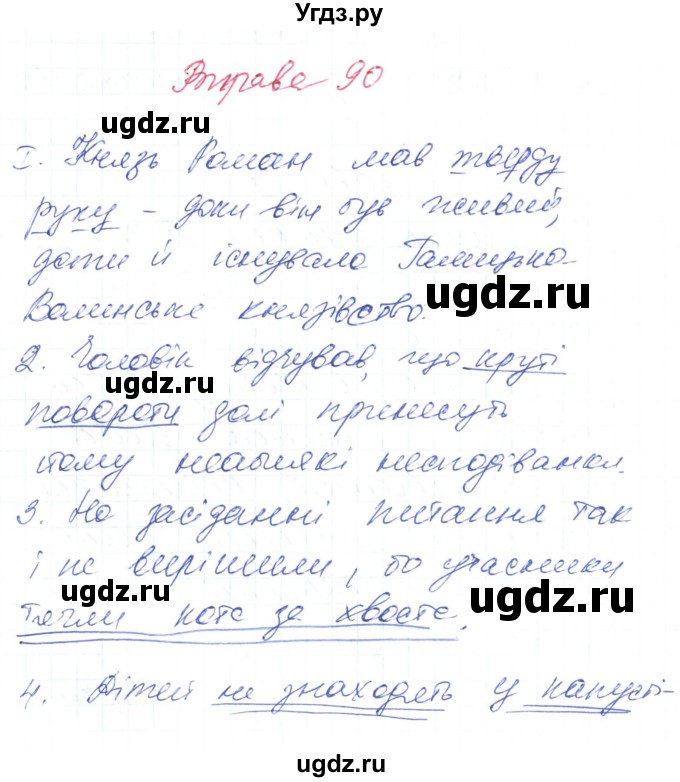 Угдз.ру
Вправа 90
ugdz.ru
I. Князь Роман мав тверду
руку - доки він був живий,
доти й існувало Галицько-
ugdz.ru
Волинське князівство.
2. Чоловік відчував, що круті
ugdz.ru
повороти долі принесуть
йому неабиякі несподіванки.
3. На засіданні питання так
і не вирішили, бо учасники
ugdz.ru
ugdz.ru
тягли кота за хвоста.
4. Дітей не знаходять у капусті-
ugdz.ru